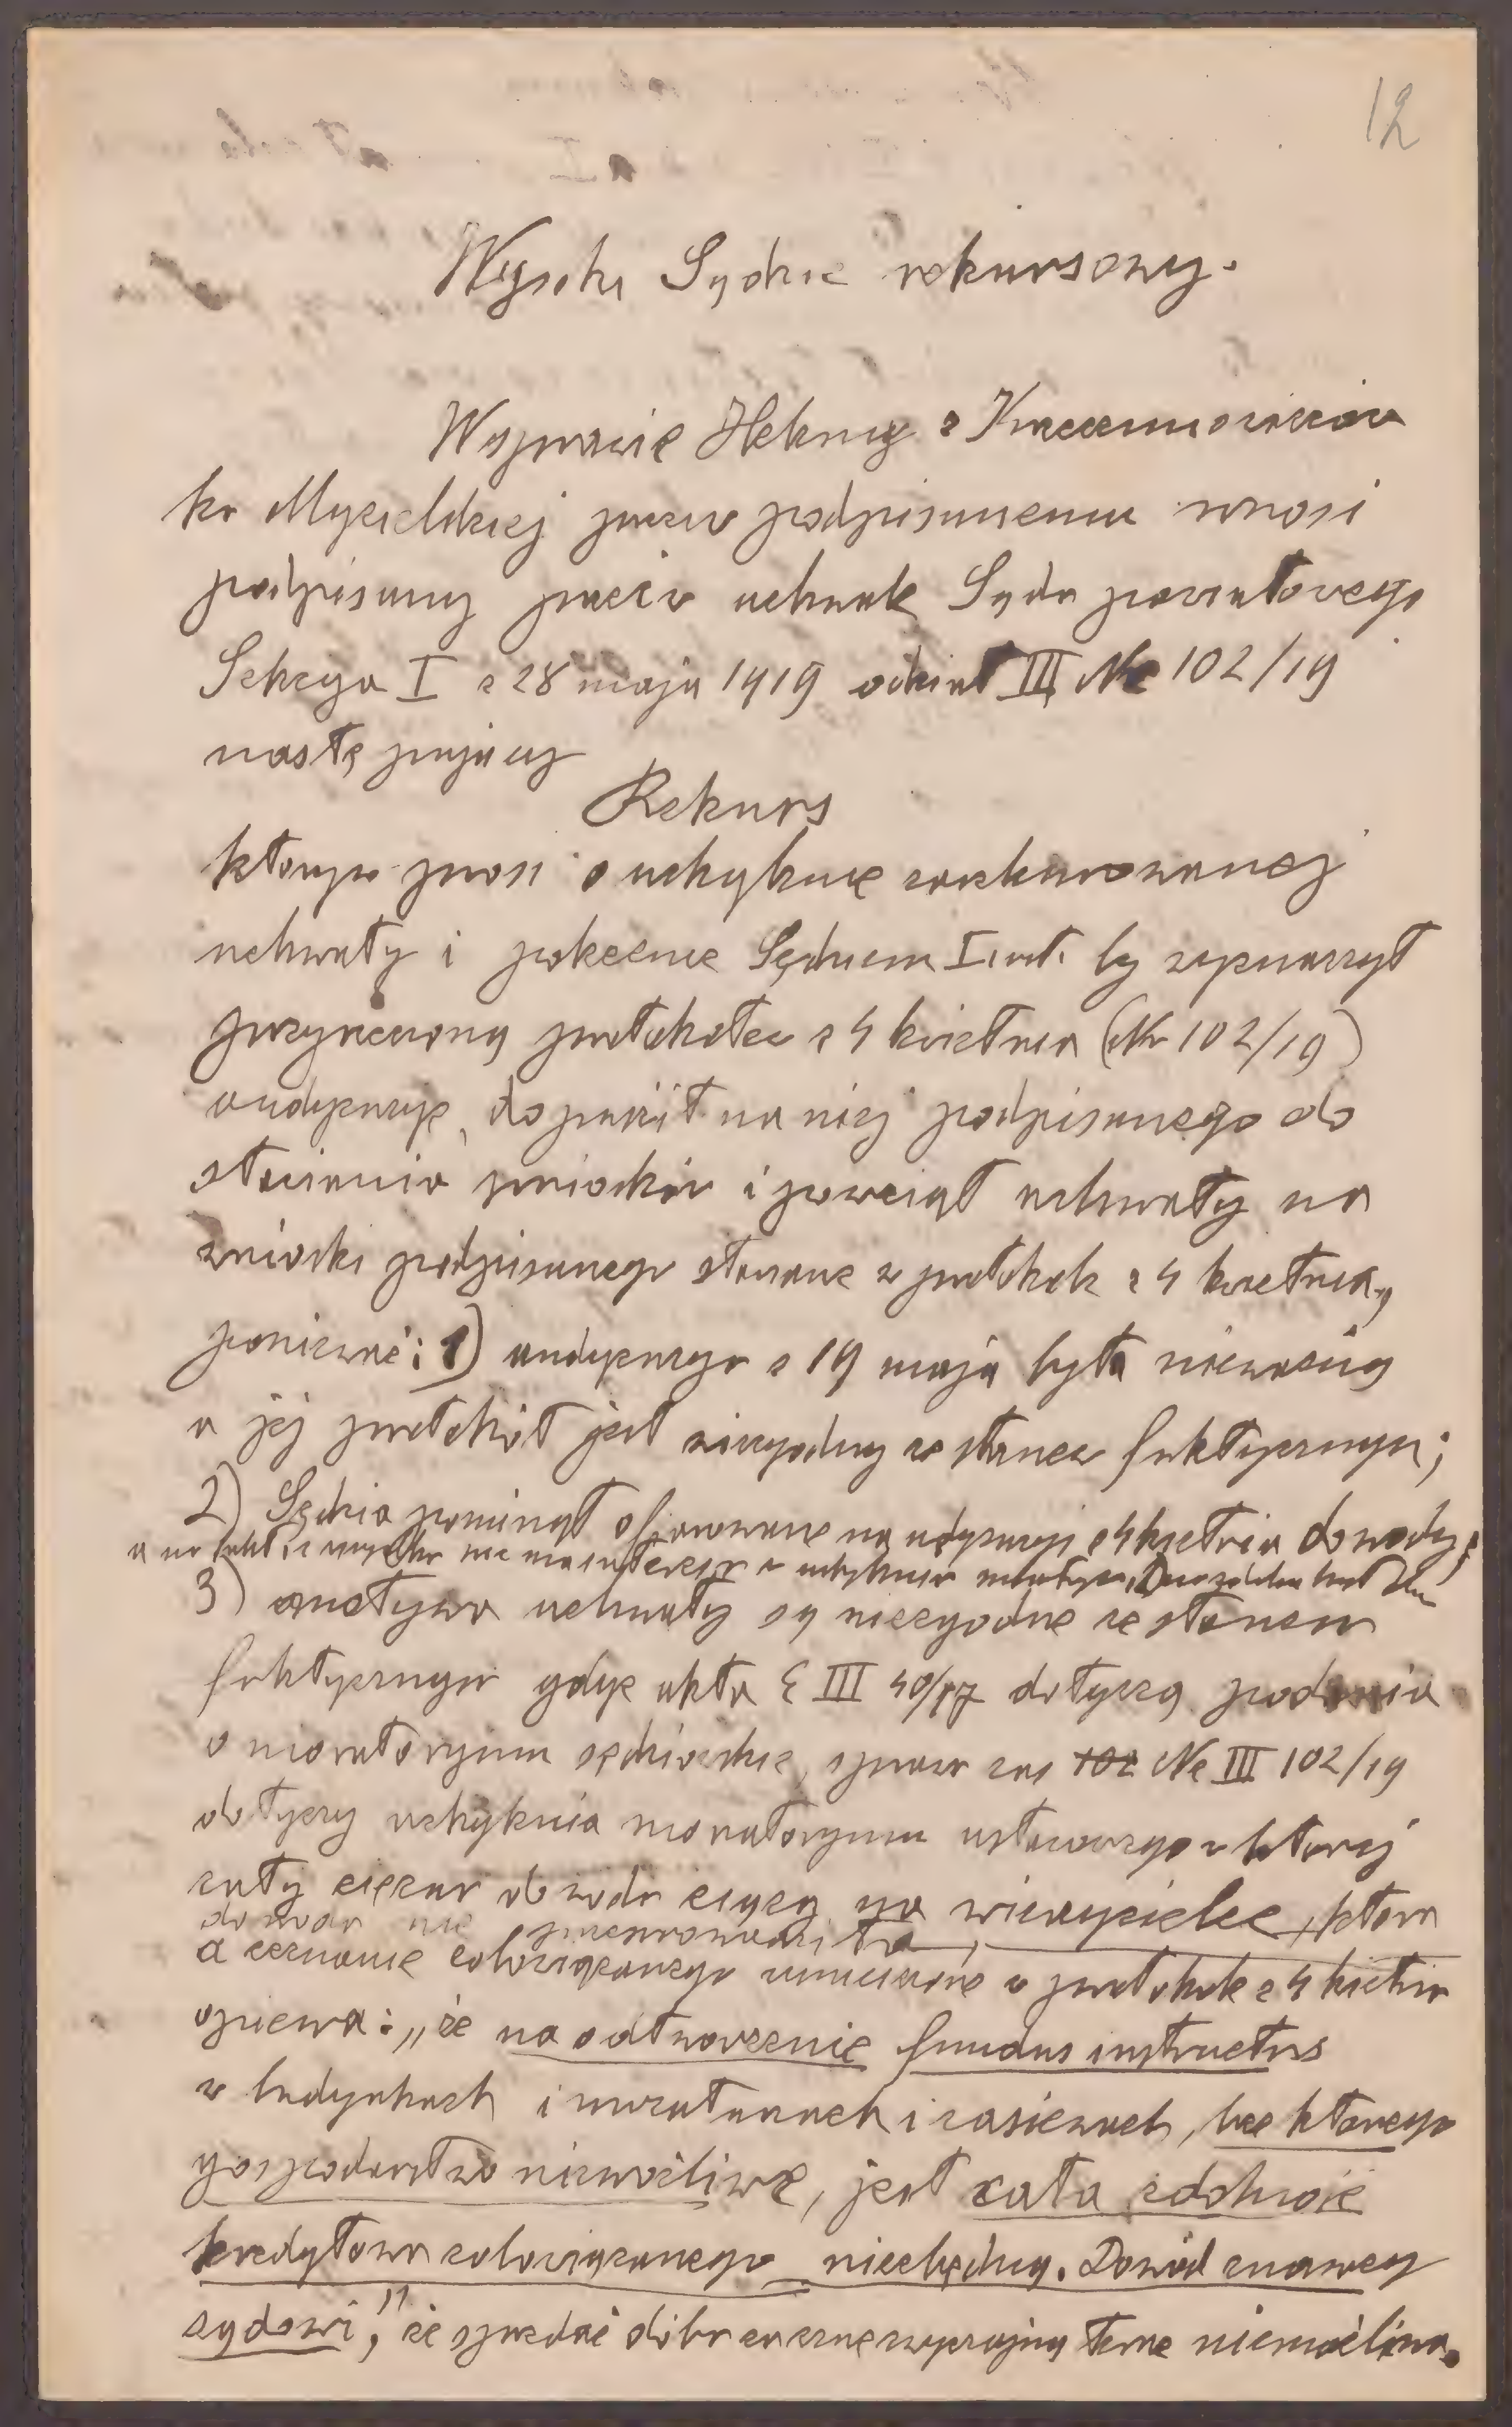 12
Wysoki Sądzie rekursowy.
W sprawie Heleny z
ko Mycielskiej przeciw podpisanemu wnosi
podpisany przeciw uchwale Sądu powiatowego
Sekcya I z 28 maja 1919 oddział III Nc 102/19
następujący
Rekurs
którym prosi o uchylenie zaskarżowanej
uchwały i polecenie Sędziemu I inst. by wyznaczył
przyrzeczoną protokołem z 4 kwietnia (Nc 102/19)
audyencyę, dopuścił na niej podpisanego do
stawiania wniosków i powziął uchwały na
wnioski podpisanego stawiane w protokole z 4 kwietnia,
ponieważ: 1) audyencya z 19 maja była nieważną
a jej protokół jest niezgodny ze stanem faktycznym;
2) Sędzia pominął ofiarowane na audyencyi z 4 kwietnia dowody;
a na fakt, że nie ma interesu w uchyleniu
3) motywa uchwały są niezgodne ze stanem
faktycznym gdyż akta E III 40/17 dotyczą podania
o moratoryum sędziowskie, sprawa zaś 102 Nc III 102/19
dotyczy uchylenia moratoryum ustawowego w której
cały ciężar dowodu ciąży na wierzycielce, która
dowodu nie
a zeznanie zobowiązanego umieszczone w protokole z 4 kwietnia
opiewa: „że na odtworzenie fundus instructus
w budynkach i inwentarzach i zasiewach, bez którego
gospodarstwo niemożliwe, jest cała zdolność
kredytowa zobowiązanego niezbędną. Dowód znawcy
sądowi,” że sprzedać dóbr teraz niemożliwa.